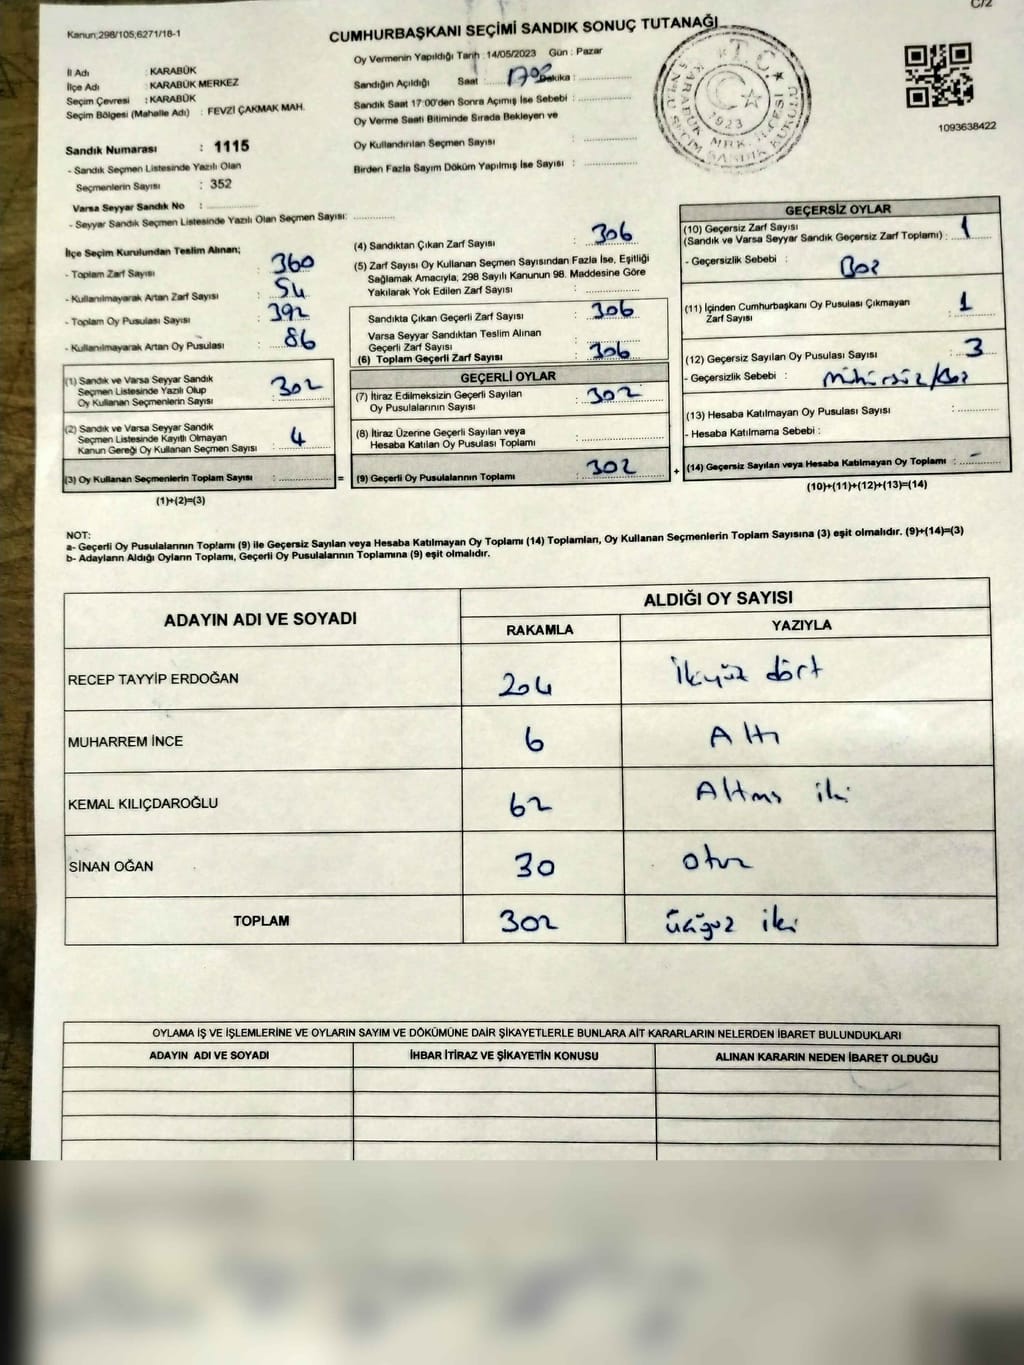 C/2
Kanun;298/105;6271/18-1
CUMHURBAŞKANI SEÇİMİ SANDIK SONUÇ TUTANAĞI
İl Adı : KARABÜK
İlçe Adı : KARABÜK MERKEZ
Seçim Çevresi : KARABÜK
Seçim Bölgesi (Mahalle Adı) : FEVZİ ÇAKMAK MAH.
Sandık Numarası : 1115
- Sandık Seçmen Listesinde Yazılı Olan
Seçmenlerin Sayısı : 352
Varsa Seyyar Sandık No :
- Seyyar Sandık Seçmen Listesinde Yazılı Olan Seçmen Sayısı:
Oy Vermenin Yapıldığı Tarih :14/05/2023 Gün : Pazar
Sandığın Açıldığı Saat : 1700 Dakika :
Sandık Saat 17:00'den Sonra Açımış İse Sebebi :
Oy Verme Saati Bitiminde Sırada Bekleyen ve
Oy Kullandırılan Seçmen Sayısı :
Birden Fazla Sayım Döküm Yapılmış İse Sayısı :
T.C.
1923
KARABÜK MRK. İLÇESİ
1093638422
İlçe Seçim Kurulundan Teslim Alınan;
- Toplam Zarf Sayısı : 360
- Kullanılmayarak Artan Zarf Sayısı : 54
- Toplam Oy Pusulası Sayısı : 392
- Kullanılmayarak Artan Oy Pusulası : 86
(1) Sandık ve Varsa Seyyar Sandık
Seçmen Listesinde Yazılı Olup
Oy Kullanan Seçmenlerin Sayısı : 302
(2) Sandık ve Varsa Seyyar Sandık
Seçmen Listesinde Kayıtlı Olmayan
Kanun Gereği Oy Kullanan Seçmen Sayısı : 4
(3) Oy Kullanan Seçmenlerin Toplam Sayısı :
(1)+(2)=(3)
(4) Sandıktan Çıkan Zarf Sayısı : 306
(5) Zarf Sayısı Oy Kullanan Seçmen Sayısından Fazla İse, Eşitliği
Sağlamak Amacıyla; 298 Sayılı Kanunun 98. Maddesine Göre
Yakılarak Yok Edilen Zarf Sayısı :
Sandıkta Çıkan Geçerli Zarf Sayısı : 306
Varsa Seyyar Sandıktan Teslim Alınan
Geçerli Zarf Sayısı :
(6) Toplam Geçerli Zarf Sayısı : 306
GEÇERLİ OYLAR
(7) İtiraz Edilmeksizin Geçerli Sayılan
Oy Pusulalarının Sayısı : 302
(8) İtiraz Üzerine Geçerli Sayılan veya
Hesaba Katılan Oy Pusulası Toplamı :
= (9) Geçerli Oy Pusulalarının Toplamı : 302
GEÇERSİZ OYLAR
(10) Geçersiz Zarf Sayısı
(Sandık ve Varsa Seyyar Sandık Geçersiz Zarf Toplamı) : 1
- Geçersizlik Sebebi : Boz
(11) İçinden Cumhurbaşkanı Oy Pusulası Çıkmayan
Zarf Sayısı : 1
(12) Geçersiz Sayılan Oy Pusulası Sayısı : 3
- Geçersizlik Sebebi : Mühürsüz/Boz
(13) Hesaba Katılmayan Oy Pusulası Sayısı :
- Hesaba Katılmama Sebebi :
+ (14) Geçersiz Sayılan veya Hesaba Katılmayan Oy Toplamı : -
(10)+(11)+(12)+(13)=(14)
NOT:
a- Geçerli Oy Pusulalarının Toplamı (9) ile Geçersiz Sayılan veya Hesaba Katılmayan Oy Toplamı (14) Toplamları, Oy Kullanan Seçmenlerin Toplam Sayısına (3) eşit olmalıdır. (9)+(14)=(3)
b- Adayların Aldığı Oyların Toplamı, Geçerli Oy Pusulalarının Toplamına (9) eşit olmalıdır.
ADAYIN ADI VE SOYADI ALDIĞI OY SAYISI
RAKAMLA YAZIYLA
RECEP TAYYİP ERDOĞAN 204 İkiyüz dört
MUHARREM İNCE 6 Altı
KEMAL KILIÇDAROĞLU 62 Altmış iki
SİNAN OĞAN 30 Otuz
TOPLAM 302 üçyüz iki
OYLAMA İŞ VE İŞLEMLERİNE VE OYLARIN SAYIM VE DÖKÜMÜNE DAİR ŞİKAYETLERLE BUNLARA AİT KARARLARIN NELERDEN İBARET BULUNDUKLARI
ADAYIN ADI VE SOYADI İHBAR İTİRAZ VE ŞİKAYETİN KONUSU ALINAN KARARIN NEDEN İBARET OLDUĞU